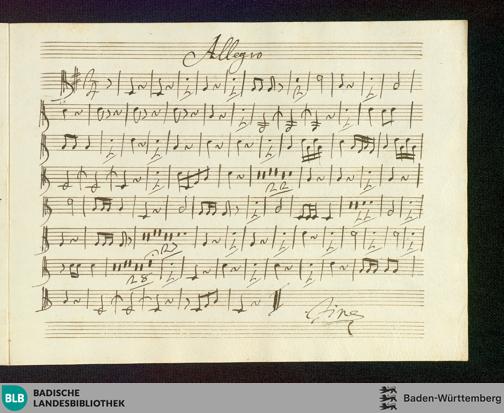 Allegro
22
12
28
Fine
BLB
BADISCHE
LANDESBIBLIOTHEK
Baden-Württemberg